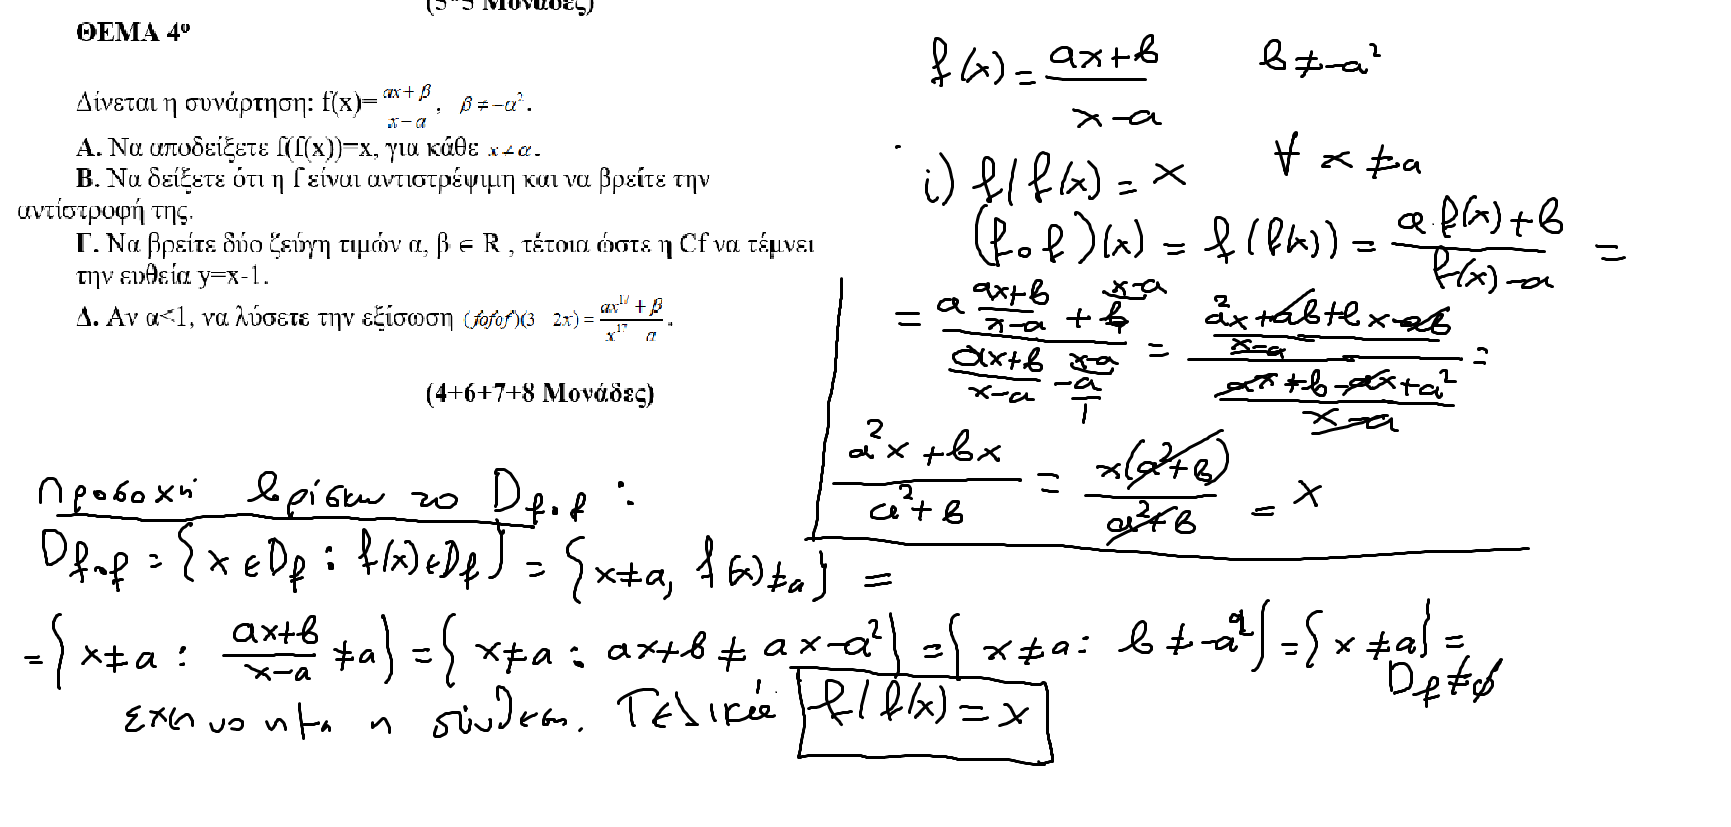 (5+5 Μονάδες)
ΘΕΜΑ 4ο
Δίνεται η συνάρτηση: f(x)= αx+β / x−α , β ≠ −α².
Α. Να αποδείξετε f(f(x))=x, για κάθε x ≠ α.
Β. Να δείξετε ότι η f είναι αντιστρέψιμη και να βρείτε την
αντίστροφή της.
Γ. Να βρείτε δύο ζεύγη τιμών α, β ∈ R , τέτοια ώστε η Cf να τέμνει
την ευθεία y=x-1.
Δ. Αν α<1, να λύσετε την εξίσωση (fofof)(3 2x) = αx¹⁷ + β / x¹⁷ α .
(4+6+7+8 Μονάδες)
f(x) = ax+b / x-a b ≠ -a²
i) f(f(x) = x ∀ x ≠ a
(f∘f)(x) = f(f(x)) = a·f(x)+b / f(x)-a =
= a ax+b / x-a + b x-a / ax+b / x-a - a / 1 x-a = a²x+ab+bx-ab / x-a / ax+b-ax+a² / x-a =
a²x+bx / a²+b = x(a²+b) / a²+b = x
Προσοχή βρίσκω το D f∘f :
D f∘f = { x ∈ Df : f(x) ∈ Df } = { x≠a, f(x)≠a } =
= { x≠a : ax+b / x-a ≠a } = { x≠a : ax+b ≠ ax-a² } = { x≠a : b ≠ -a² } = { x≠a } =
Df ≠ ∅
έχει νόημα η σύνθεση. Τελικά f(f(x) = x